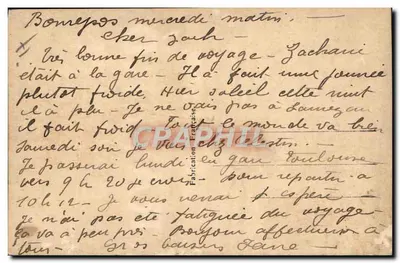 Bonrepos mercredi matin.
Cher Jach -
Très bonne fin de voyage - Zacharie
était à la gare - Il a fait une journée
plutot froide. Hier soleil cette nuit
il a plu - Je ne vais pas à Lannezan
il fait froid. Tout le monde va bien
Samedi soir je vais chez
Je passerai lundi en gare Toulouse
vers 9h 20 je crois - pour repartir à
10h12 - Je vous verrai j'espère -
Je n'ai pas été fatiguée du voyage -
ça va à peu près. Bonjour affectueux à
tous - Gros baisers Jane -
CPARCHIL
Fabrication Française